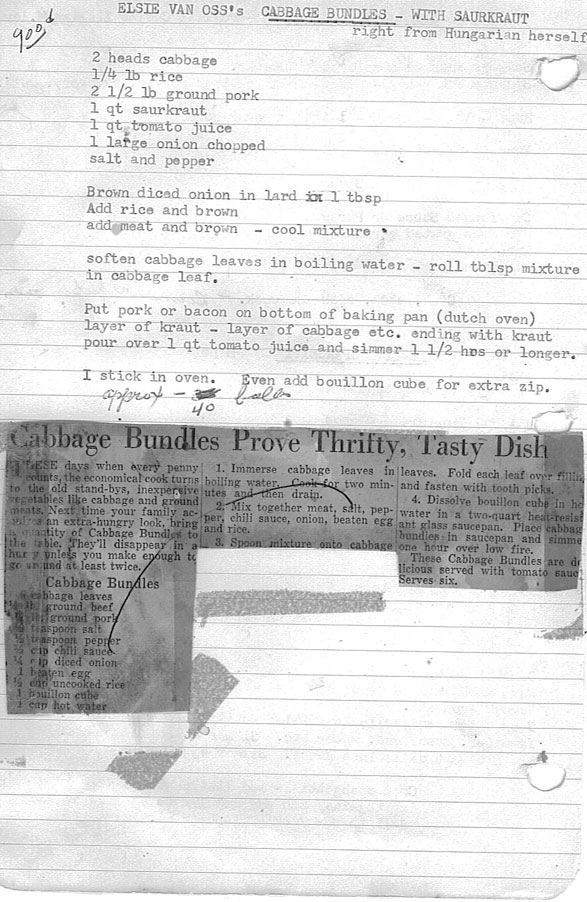 ELSIE VAN OSS's CABBAGE BUNDLES - WITH SAURKRAUT
right from Hungarian herself
good
2 heads cabbage
1/4 lb rice
2 1/2 lb ground pork
1 qt saurkraut
1 qt tomato juice
1 large onion chopped
salt and pepper
Brown diced onion in lard 1 tbsp
Add rice and brown
add meat and brown - cool mixture
soften cabbage leaves in boiling water - roll tblsp mixture
in cabbage leaf.
Put pork or bacon on bottom of baking pan (dutch oven)
layer of kraut - layer of cabbage etc. ending with kraut
pour over 1 qt tomato juice and simmer 1 1/2 hrs or longer.
I stick in oven. Even add bouillon cube for extra zip.
approx - 40 balls
Cabbage Bundles Prove Thrifty, Tasty Dish
THESE days when every penny
counts, the economical cook turns
to the old stand-bys, inexpensive
vegetables like cabbage and ground
meats. Next time your family ac-
quires an extra-hungry look, bring
a quantity of Cabbage Bundles to
the table. They'll disappear in a
hurry unless you make enough to
go around at least twice.
Cabbage Bundles
cabbage leaves
lb. ground beef
lb. ground pork
teaspoon salt
teaspoon pepper
cup chili sauce
cup diced onion
1 beaten egg
½ cup uncooked rice
1 bouillon cube
1 cup hot water
1. Immerse cabbage leaves in
boiling water. Cook for two min-
utes and then drain.
2. Mix together meat, salt, pep-
per, chili sauce, onion, beaten egg
and rice.
3. Spoon mixture onto cabbage
leaves. Fold each leaf over fillin
and fasten with tooth picks.
4. Dissolve bouillon cube in ho
water in a two-quart heat-resist
ant glass saucepan. Place cabbag
bundles in saucepan and simme
one hour over low fire.
These Cabbage Bundles are de
licious served with tomato sauc
Serves six.